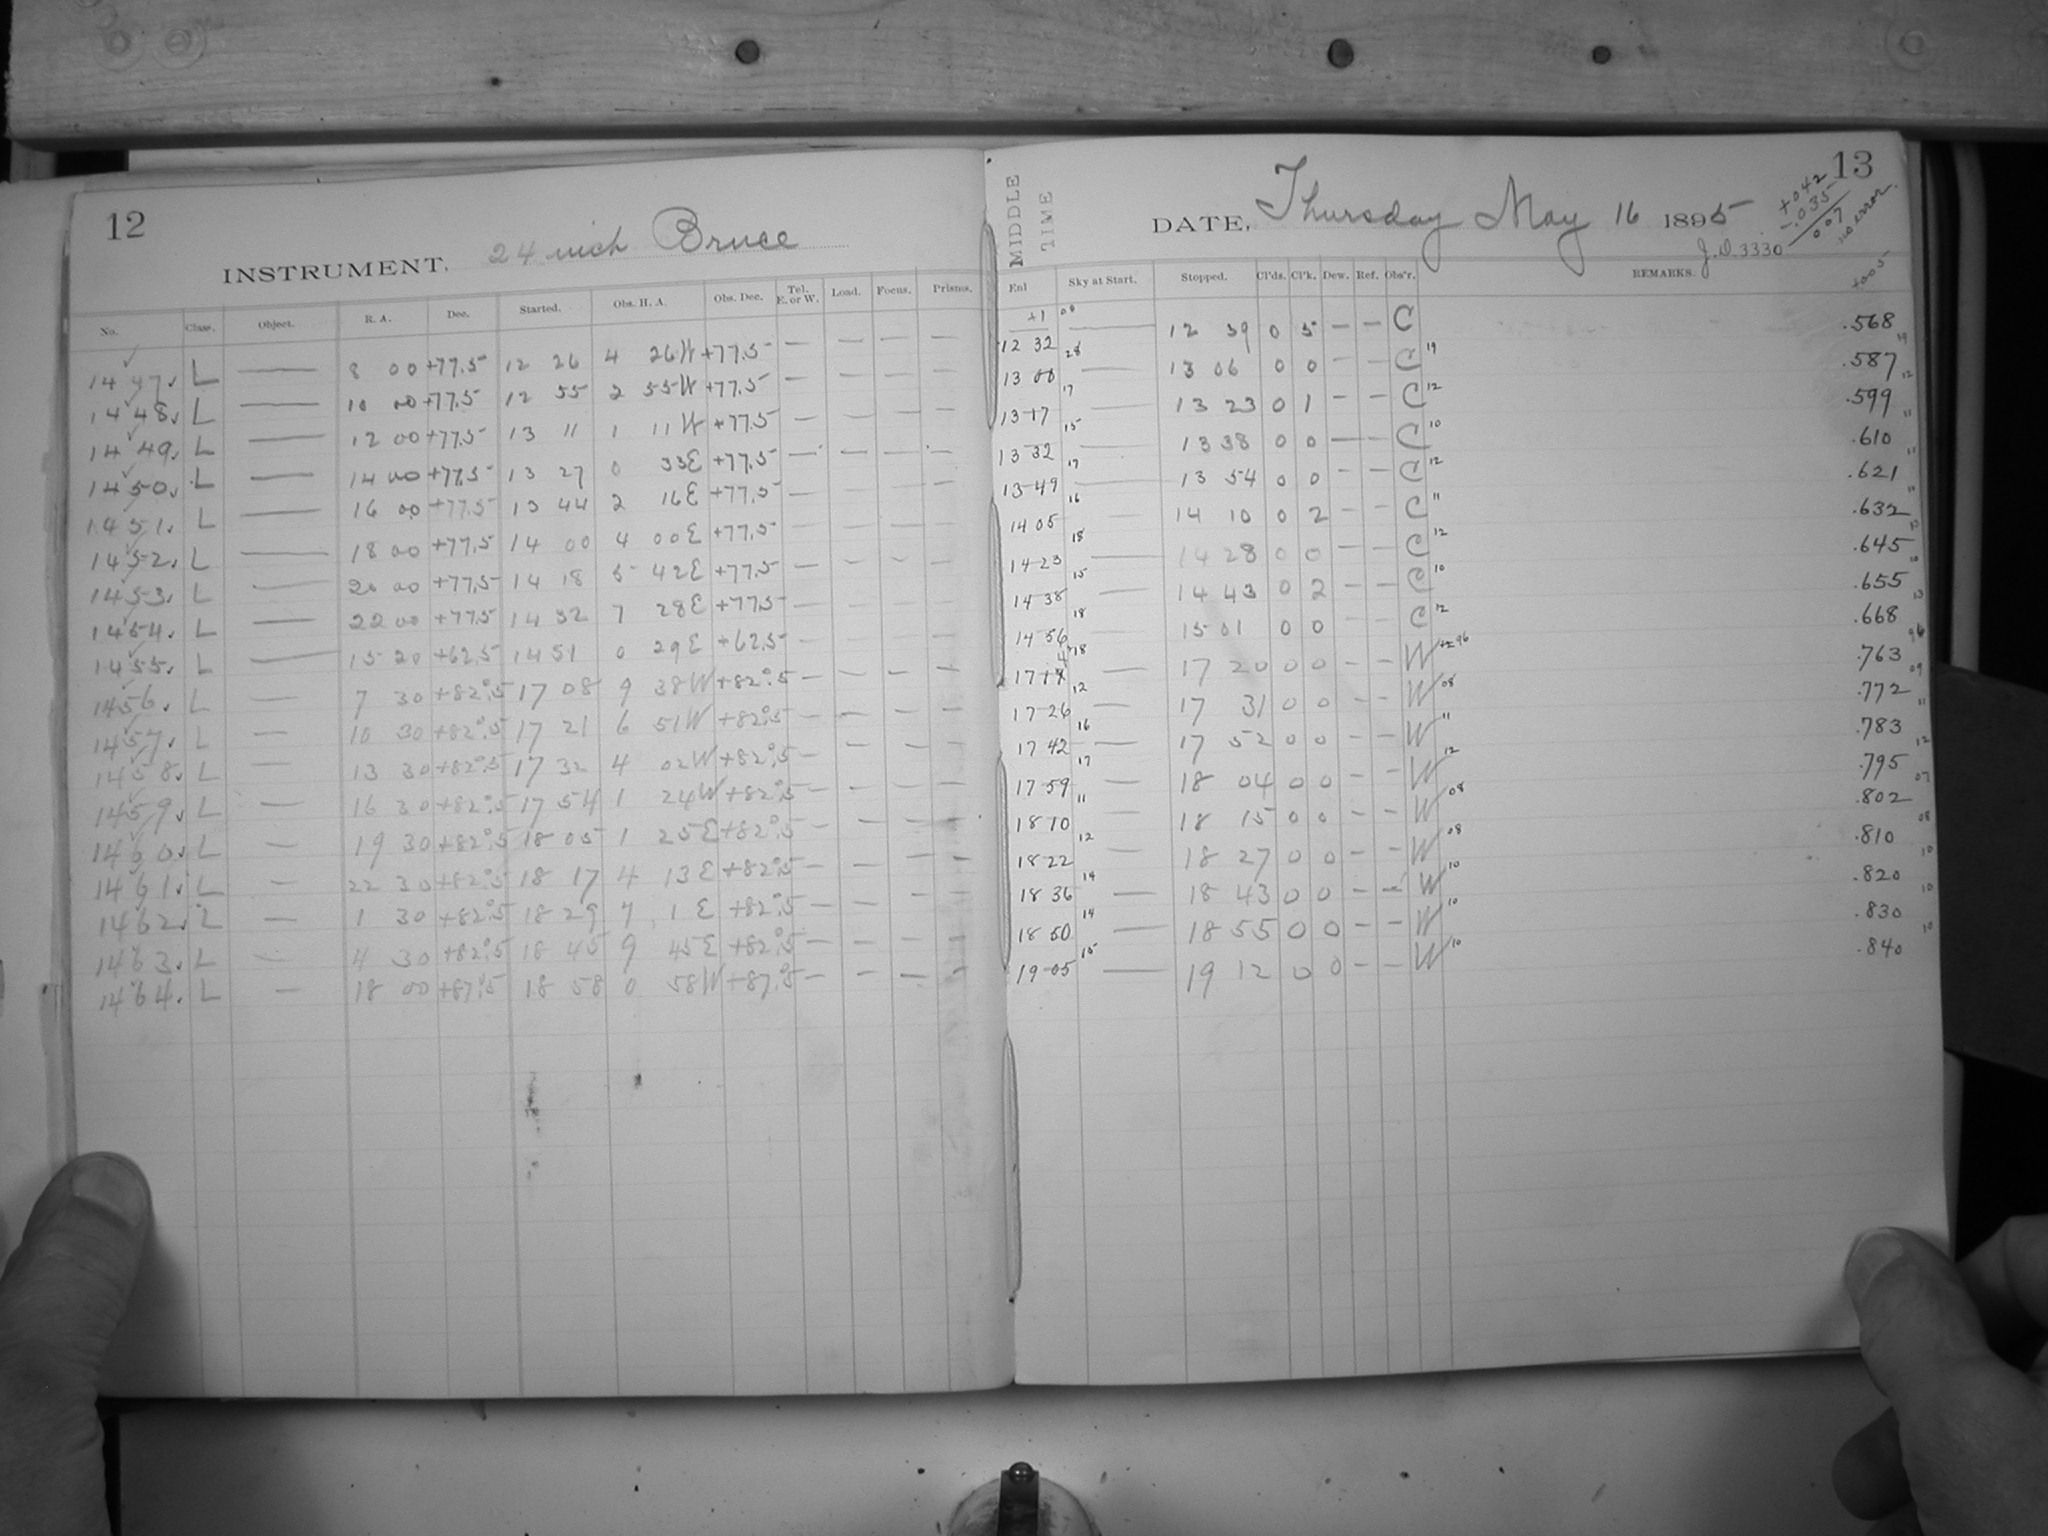 12
INSTRUMENT, 24 inch Bruce
No. Class. Object. R. A. Dec. Started. Obs. H. A. Obs. Dec. Tel. E. or W. Load. Focus. Prisms.
1447. L — 8 00 +77.5 12 26 4 26 W +77.5 — — — —
1448. L — 10 00 +77.5 12 55 2 55 W +77.5 — — — —
1449. L — 12 00 +77.5 13 11 1 11 W +77.5 — — — —
1450. L — 14 00 +77.5 13 27 0 33 E +77.5 — — — —
1451. L — 16 00 +77.5 13 44 2 16 E +77.5 — — — —
1452. L — 18 00 +77.5 14 00 4 00 E +77.5 — — — —
1453. L — 20 00 +77.5 14 18 5 42 E +77.5 — — — —
1454. L — 22 00 +77.5 14 32 7 28 E +77.5 — — — —
1455. L — 15 20 +62.5 14 51 0 29 E +62.5 — — — —
1456. L — 7 30 +82°.5 17 08 9 38 W +82°.5 — — — —
1457. L — 10 30 +82°.5 17 21 6 51 W +82°.5 — — — —
1458. L — 13 30 +82°.5 17 32 4 02 W +82°.5 — — — —
1459. L — 16 30 +82°.5 17 54 1 24 W +82°.5 — — — —
1460. L — 19 30 +82°.5 18 05 1 25 E +82°.5 — — — —
1461. L — 22 30 +82°.5 18 17 4 13 E +82°.5 — — — —
1462. L — 1 30 +82°.5 18 29 7 1 E +82°.5 — — — —
1463. L — 4 30 +82°.5 18 45 9 45 E +82°.5 — — — —
1464. L — 18 00 +87°.5 18 58 0 58 W +87°.5 — — — —
13
MIDDLE
TIME
DATE, Thursday May 16 1895
J.D. 3330
+.042
-.035
0.07
no error.
+.005
End Sky at Start. Stopped. Cl'ds. Cl'k. Dew. Ref. Obs'r. REMARKS.
+1 00
12 32 — 12 39 0 5 — — C .568
28
13 00 — 13 06 0 0 — — C 19 .587 19
17
13 17 — 13 23 0 1 — — C 12 .599 12
15
13 32 — 13 38 0 0 — — C 10 .610 11
17
13 49 — 13 54 0 0 — — C 12 .621 11
16
14 05 — 14 10 0 2 — — C 11 .632 11
18
14 23 — 14 28 0 0 — — C 12 .645 13
15
14 38 — 14 43 0 2 — — C 10 .655 10
18
14 56 — 15 01 0 0 — — C 12 .668 13
17 14 — 17 20 0 0 — — W 96 .763
12
17 26 — 17 31 0 0 — — W 08 .772 09
16
17 42 — 17 52 0 0 — — W 11 .783 11
17
17 59 — 18 04 0 0 — — W 12 .795 12
11
18 10 — 18 15 0 0 — — W 08 .802 07
12
18 22 — 18 27 0 0 — — W 08 .810 08
14
18 36 — 18 43 0 0 — — W 10 .820 10
14
18 50 — 18 55 0 0 — — W 10 .830 10
15
19 05 — 19 12 0 0 — — W 10 .840 10